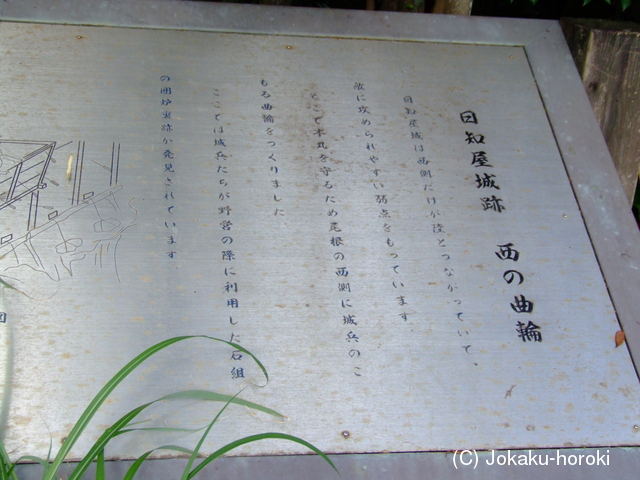 日知屋城跡　西の曲輪
日知屋城は西側だけが陸とつながっていて、
敵に攻められやすい弱点をもっています
そこで本丸を守るため尾根の西側に城兵のこ
もる曲輪をつくりました
ここでは城兵たちが野営の際に利用した石組
の囲炉裏跡が発見されています
図
(C) Jokaku-horoki